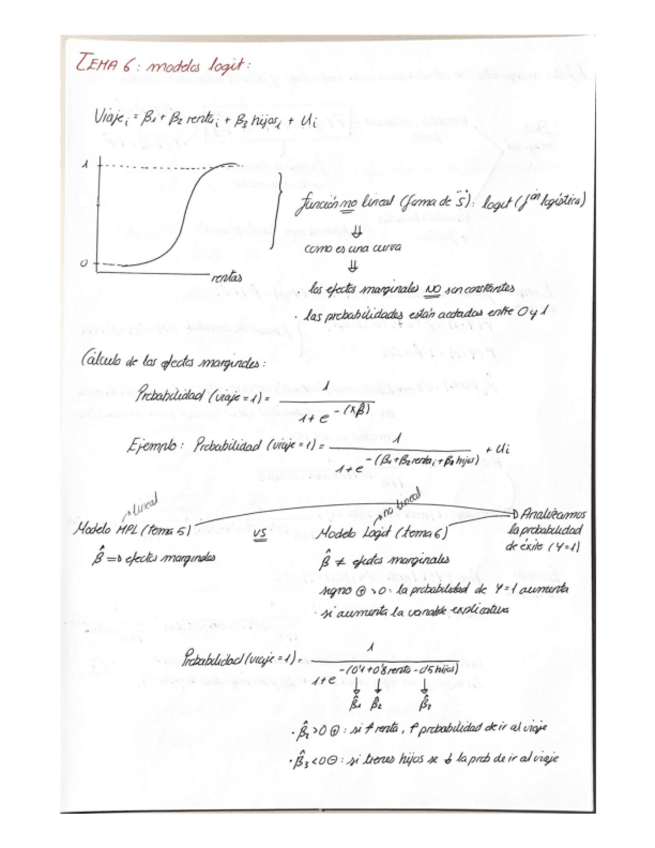 TEMA 6: modelos logit:
Viaje i = β1 + β2 renta i + β3 hijos i + Ui
1
0
rentas
función no lineal (forma de "S"): logit (fon logística)
⇓
como es una curva
⇓
· los efectos marginales NO son constantes
· las probabilidades están acotadas entre 0 y 1
Cálculo de los efectos marginales:
Probabilidad (viaje=1) = 1 / 1 + e^-(xβ̂)
Ejemplo: Probabilidad (viaje=1) = 1 / 1 + e^-(β1+β2 renta i+β3 hijos) + Ui
lineal
no lineal
Modelo MPL (tema 5) vs Modelo Logit (tema 6)
Analizamos
la probabilidad
de éxito (Y=1)
β̂ => efectos marginales
β̂ ≠ efectos marginales
signo ⊕ >0: la probabilidad de Y=1 aumenta
si aumenta la variable explicativa
Probabilidad (viaje=1) = 1 / 1 + e^-(0'1+0'8 renta-0'5 hijos)
↓ ↓ ↓
β̂1 β̂2 β̂3
· β̂2 >0 ⊕: si ↑ renta, ↑ probabilidad de ir al viaje
· β̂3 <0 ⊖: si tienes hijos se ↓ la prob de ir al viaje